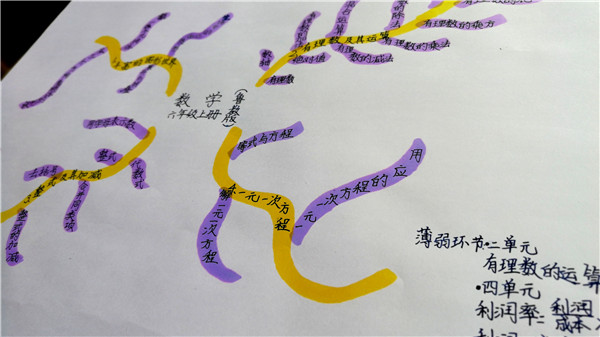 有理数的乘方
有理数及其运算
有理数的乘法
有理数的减法
绝对值
有理数
数学
六年级上册
(鲁教版)
用字母表示数
整式
代数式
合并同类项
整式的加减
等式与方程
一元一次方程
解一元一次方程
一元一次方程的应用
薄弱环节·二单元
有理数的运算
·四单元
利润率=利润/成本
利润